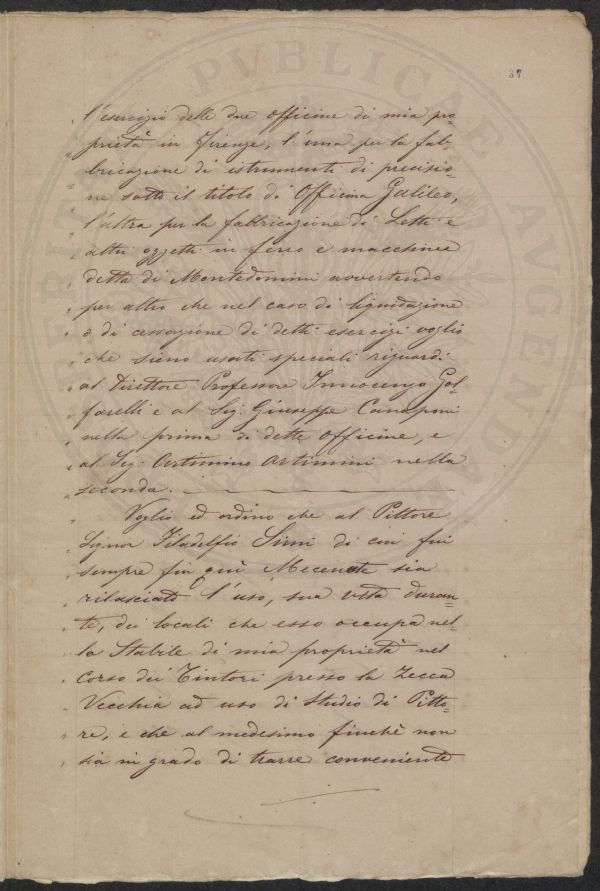 37
l'esercizio delle due officine di mia pro
prietà in Firenze, l'una per la fab-
bricazione di istrumenti di precisio-
ne sotto il titolo di Officina Galileo,
l'altra per la fabbricazione di Letti e
altri oggetti in ferro e macchine
detta di Montedomini avvertendo
per altro che nel caso di liquidazione
o di cessazione di detti esercizi voglio
che sieno usati speciali riguardi
al Direttore Professore Innocenzo Gol-
farelli e al Sig. Giuseppe Canaponi
nella prima di dette officine, e
al Sig. Artimino Artimini nella
seconda.
Voglio ed ordino che al Pittore
Signor Filadelfio Simi di cui fui
sempre fin quì Mecenate sia
rilasciato l'uso, sua vita duran-
te, dei locali che esso occupa nel-
lo Stabile di mia proprietà nel
corso dei Tintori presso la Zecca
Vecchia ad uso di Studio di Pitto-
re, e che al medesimo finchè non
sia in grado di trarre conveniente
PVBLICAE
AVGENDAE